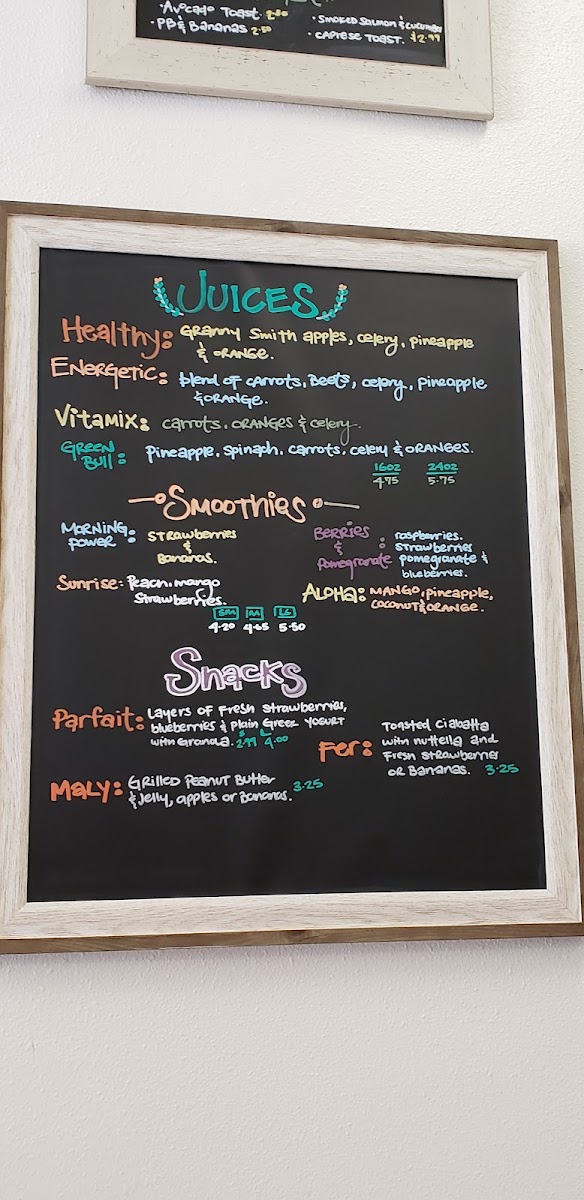 • Avocado Toast. 2.50
• PB & Bananas 2.50
• Smoked Salmon & cucumber
• Caprese Toast. $2.99
JUICES
Healthy: Granny Smith apples, celery, pineapple
& orange.
Energetic: blend of carrots, Beets, celery, pineapple
& orange.
Vitamix: carrots, oranges & celery.
Green Bull: Pineapple, spinach, carrots, celery & oranges.
16oz 24oz
4.75 5.75
Smoothies
Morning Power: Strawberries
&
Bananas.
Berries & Pomegranate: raspberries.
strawberries
pomegranate &
blueberries.
Sunrise: Peach, mango
Strawberries.
Aloha: Mango, pineapple,
coconut & orange.
SM M LG
4.20 4.65 5.50
Snacks
Parfait: Layers of Fresh strawberries,
blueberries & Plain Greek Yogurt
with Granola. 2.99 4.00
Fer: Toasted Ciabatta
with nuttella and
Fresh strawberries
or Bananas. 3.25
Maly: Grilled Peanut Butter
& Jelly, apples or Bananas. 3.25